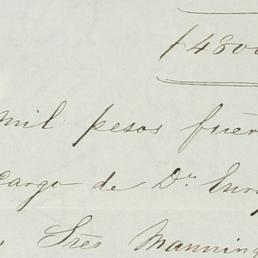 $4800
mil pesos fuer
cargo de Dn. Enri
Sres Manning